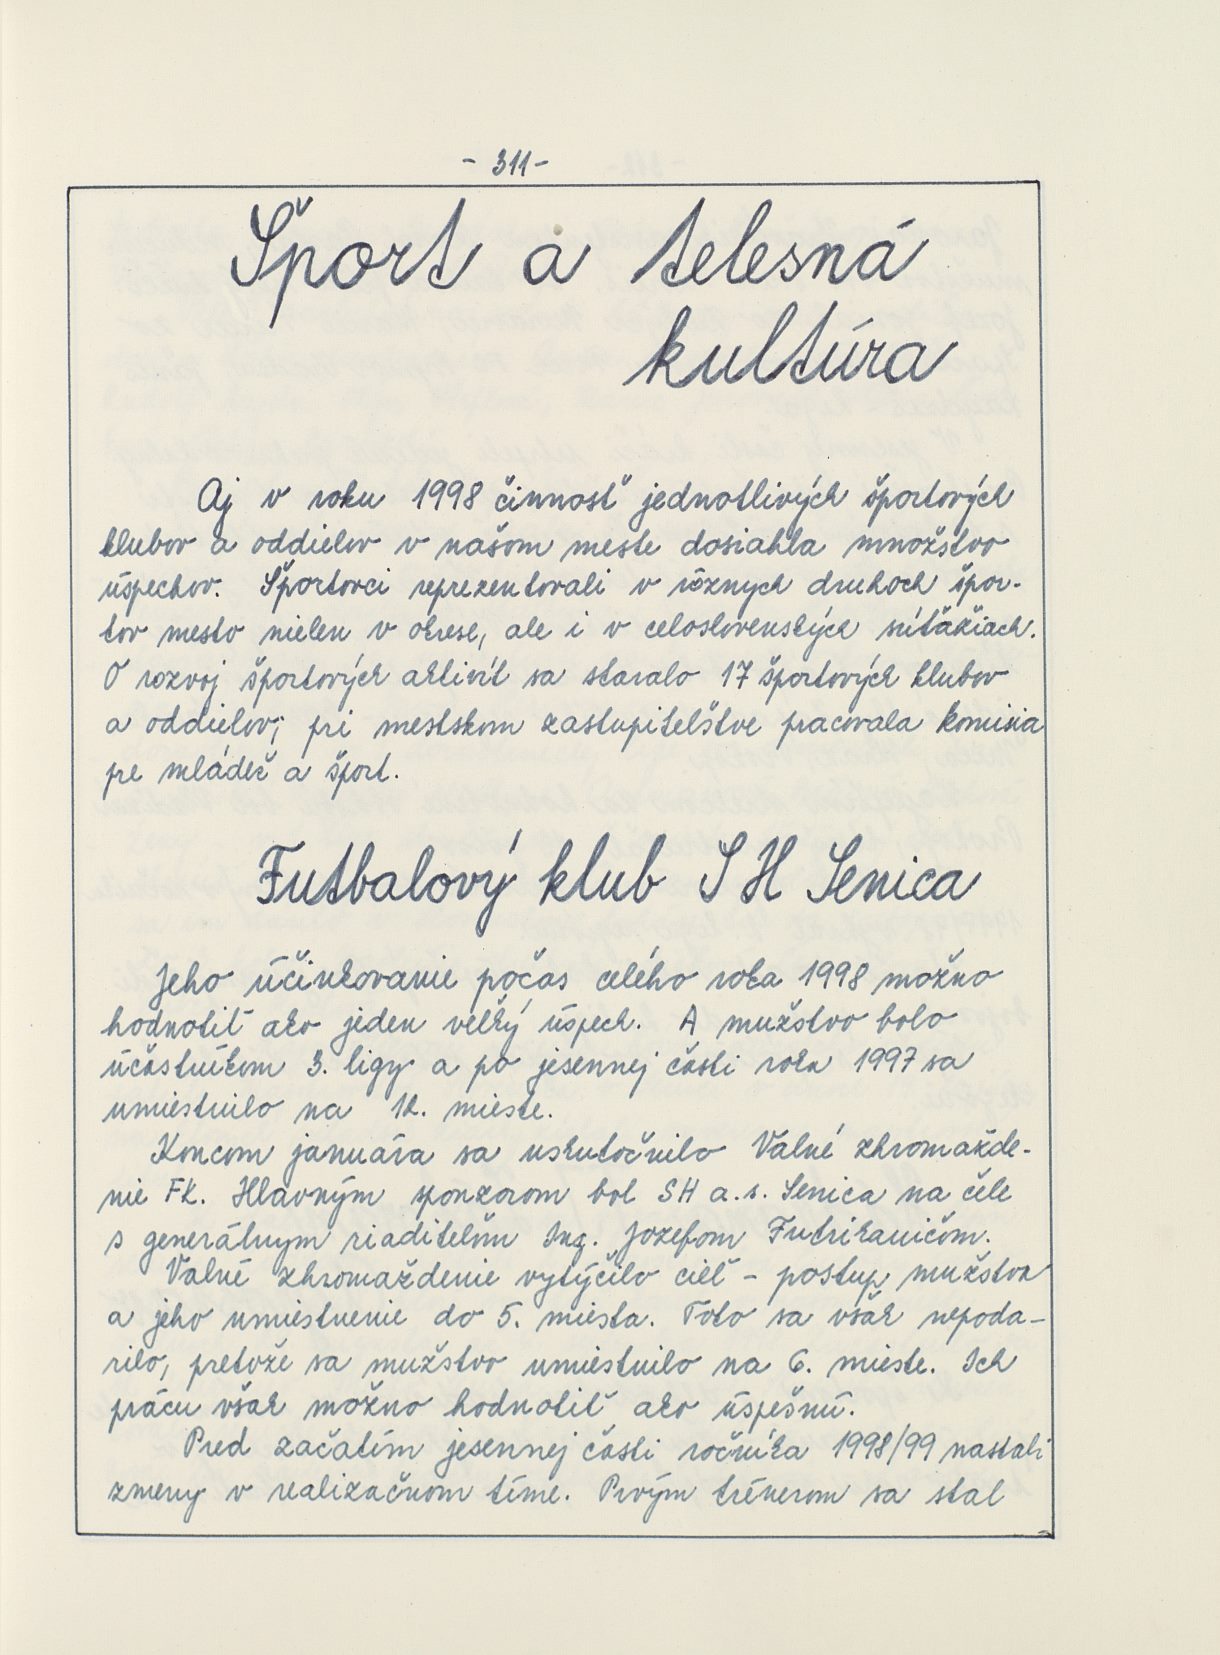 - 311 -
Šport a telesná
kultúra
Aj v roku 1998 činnosť jednotlivých športových
klubov a oddielov v našom meste dosiahla množstvo
úspechov. Športovci reprezentovali v rôznych druhoch špor-
tov mesto nielen v okrese, ale i v celoslovenských súťažiach.
O rozvoj športových aktivít sa staralo 17 športových klubov
a oddielov; pri mestskom zastupiteľstve pracovala komisia
pre mládež a šport.
Futbalový klub SH Senica
Jeho účinkovanie počas celého roka 1998 možno
hodnotiť ako jeden veľký úspech. A mužstvo bolo
účastníkom 3. ligy a po jesennej časti roka 1997 sa
umiestnilo na 12. mieste.
Koncom januára sa uskutočnilo Valné zhromažde-
nie FK. Hlavným sponzorom bol SH a.s. Senica na čele
s generálnym riaditeľom Ing. Jozefom Futrikaničom.
Valné zhromaždenie vytýčilo cieľ - postup mužstva
a jeho umiestnenie do 5. miesta. Toto sa však nepoda-
rilo, pretože sa mužstvo umiestnilo na 6. mieste. Ich
prácu však možno hodnotiť ako úspešnú.
Pred začatím jesennej časti ročníka 1998/99 nastali
zmeny v realizačnom tíme. Prvým trénerom sa stal